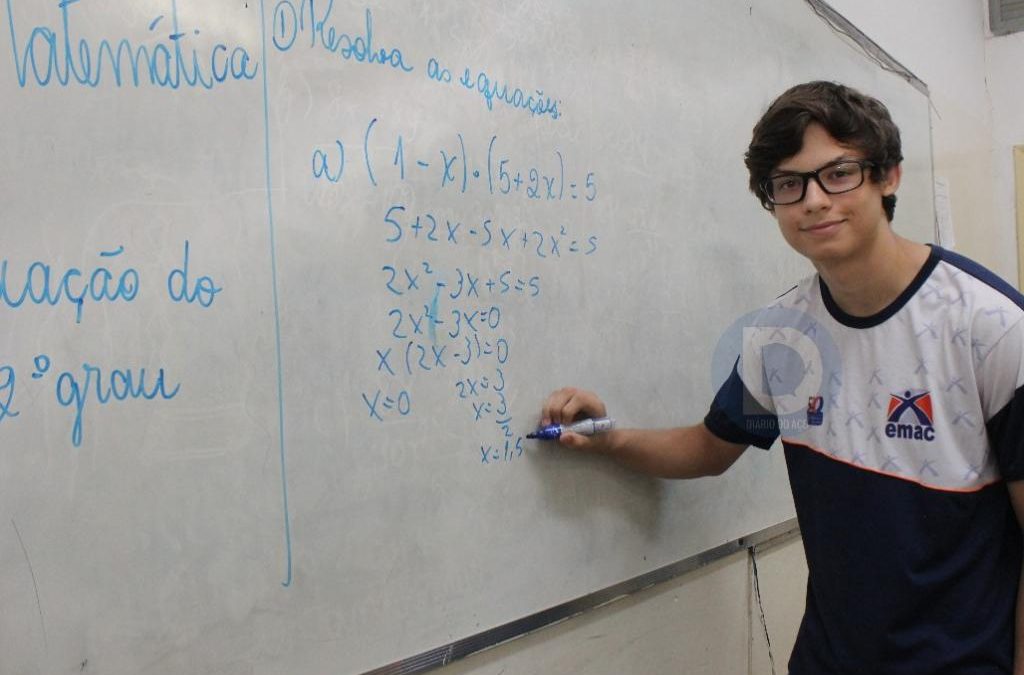 Matemática
uação do
2º grau
① Resolva as equações:
a) (1 - x) • (5+2x) = 5
5+2x - 5x + 2x² = 5
2x² - 3x + 5 = 5
2x² - 3x = 0
x (2x - 3) = 0
x = 0
2x = 3
x = 3/2
x = 1,5
DIÁRIO DO ACO
emac